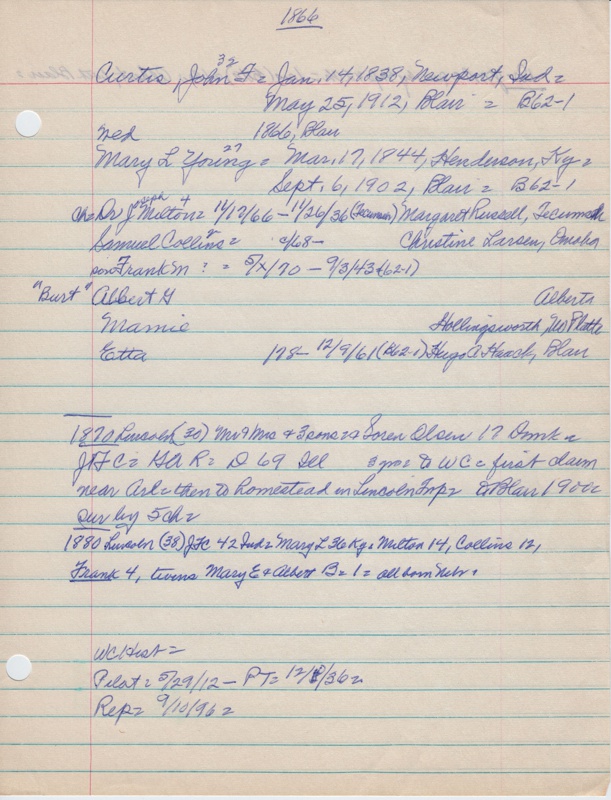 1866
32
Curtis, John F = Jan. 14, 1838, Newport, Ind =
May 25, 1912, Blair = B62-1
wed 1866, Blair
27
Mary L Young = Mar. 17, 1844, Henderson, Ky =
Sept. 6, 1902, Blair = B62-1
ch = Dr Joseph Milton = 11/17/66 - 11/26/36 (Tecumseh) Margaret Russell, Tecumseh
Samuel Collins = c/68- Christine Larsen, Omaha
son Frank M ? = 5/x/70 - 9/3/43 (62-1)
"Burt" Albert G Alberta
Mamie Hollingsworth, No Platte
Etta 178- 12/9/61 (B62-1) Hugo A Haack, Blair
1870 Lincoln (30) Mr & Mrs & 3 sons = & Soren Olsen 17 Dmk =
JFC = GAR = D 69 Ill = to WC = first claim
near Arl = then to homestead in Lincoln Twp = to Blair 1900c
Sur by 5 ch =
1880 Lincoln (38) JFC 42 Ind = Mary L 36 Ky = Milton 14, Collins 12,
Frank 4, twins Mary E & Albert B = 1 = all born Nebr =
WC Hist =
Pilot = 5/29/12 - PT = 12/ /36 =
Rep = 9/10/96 =